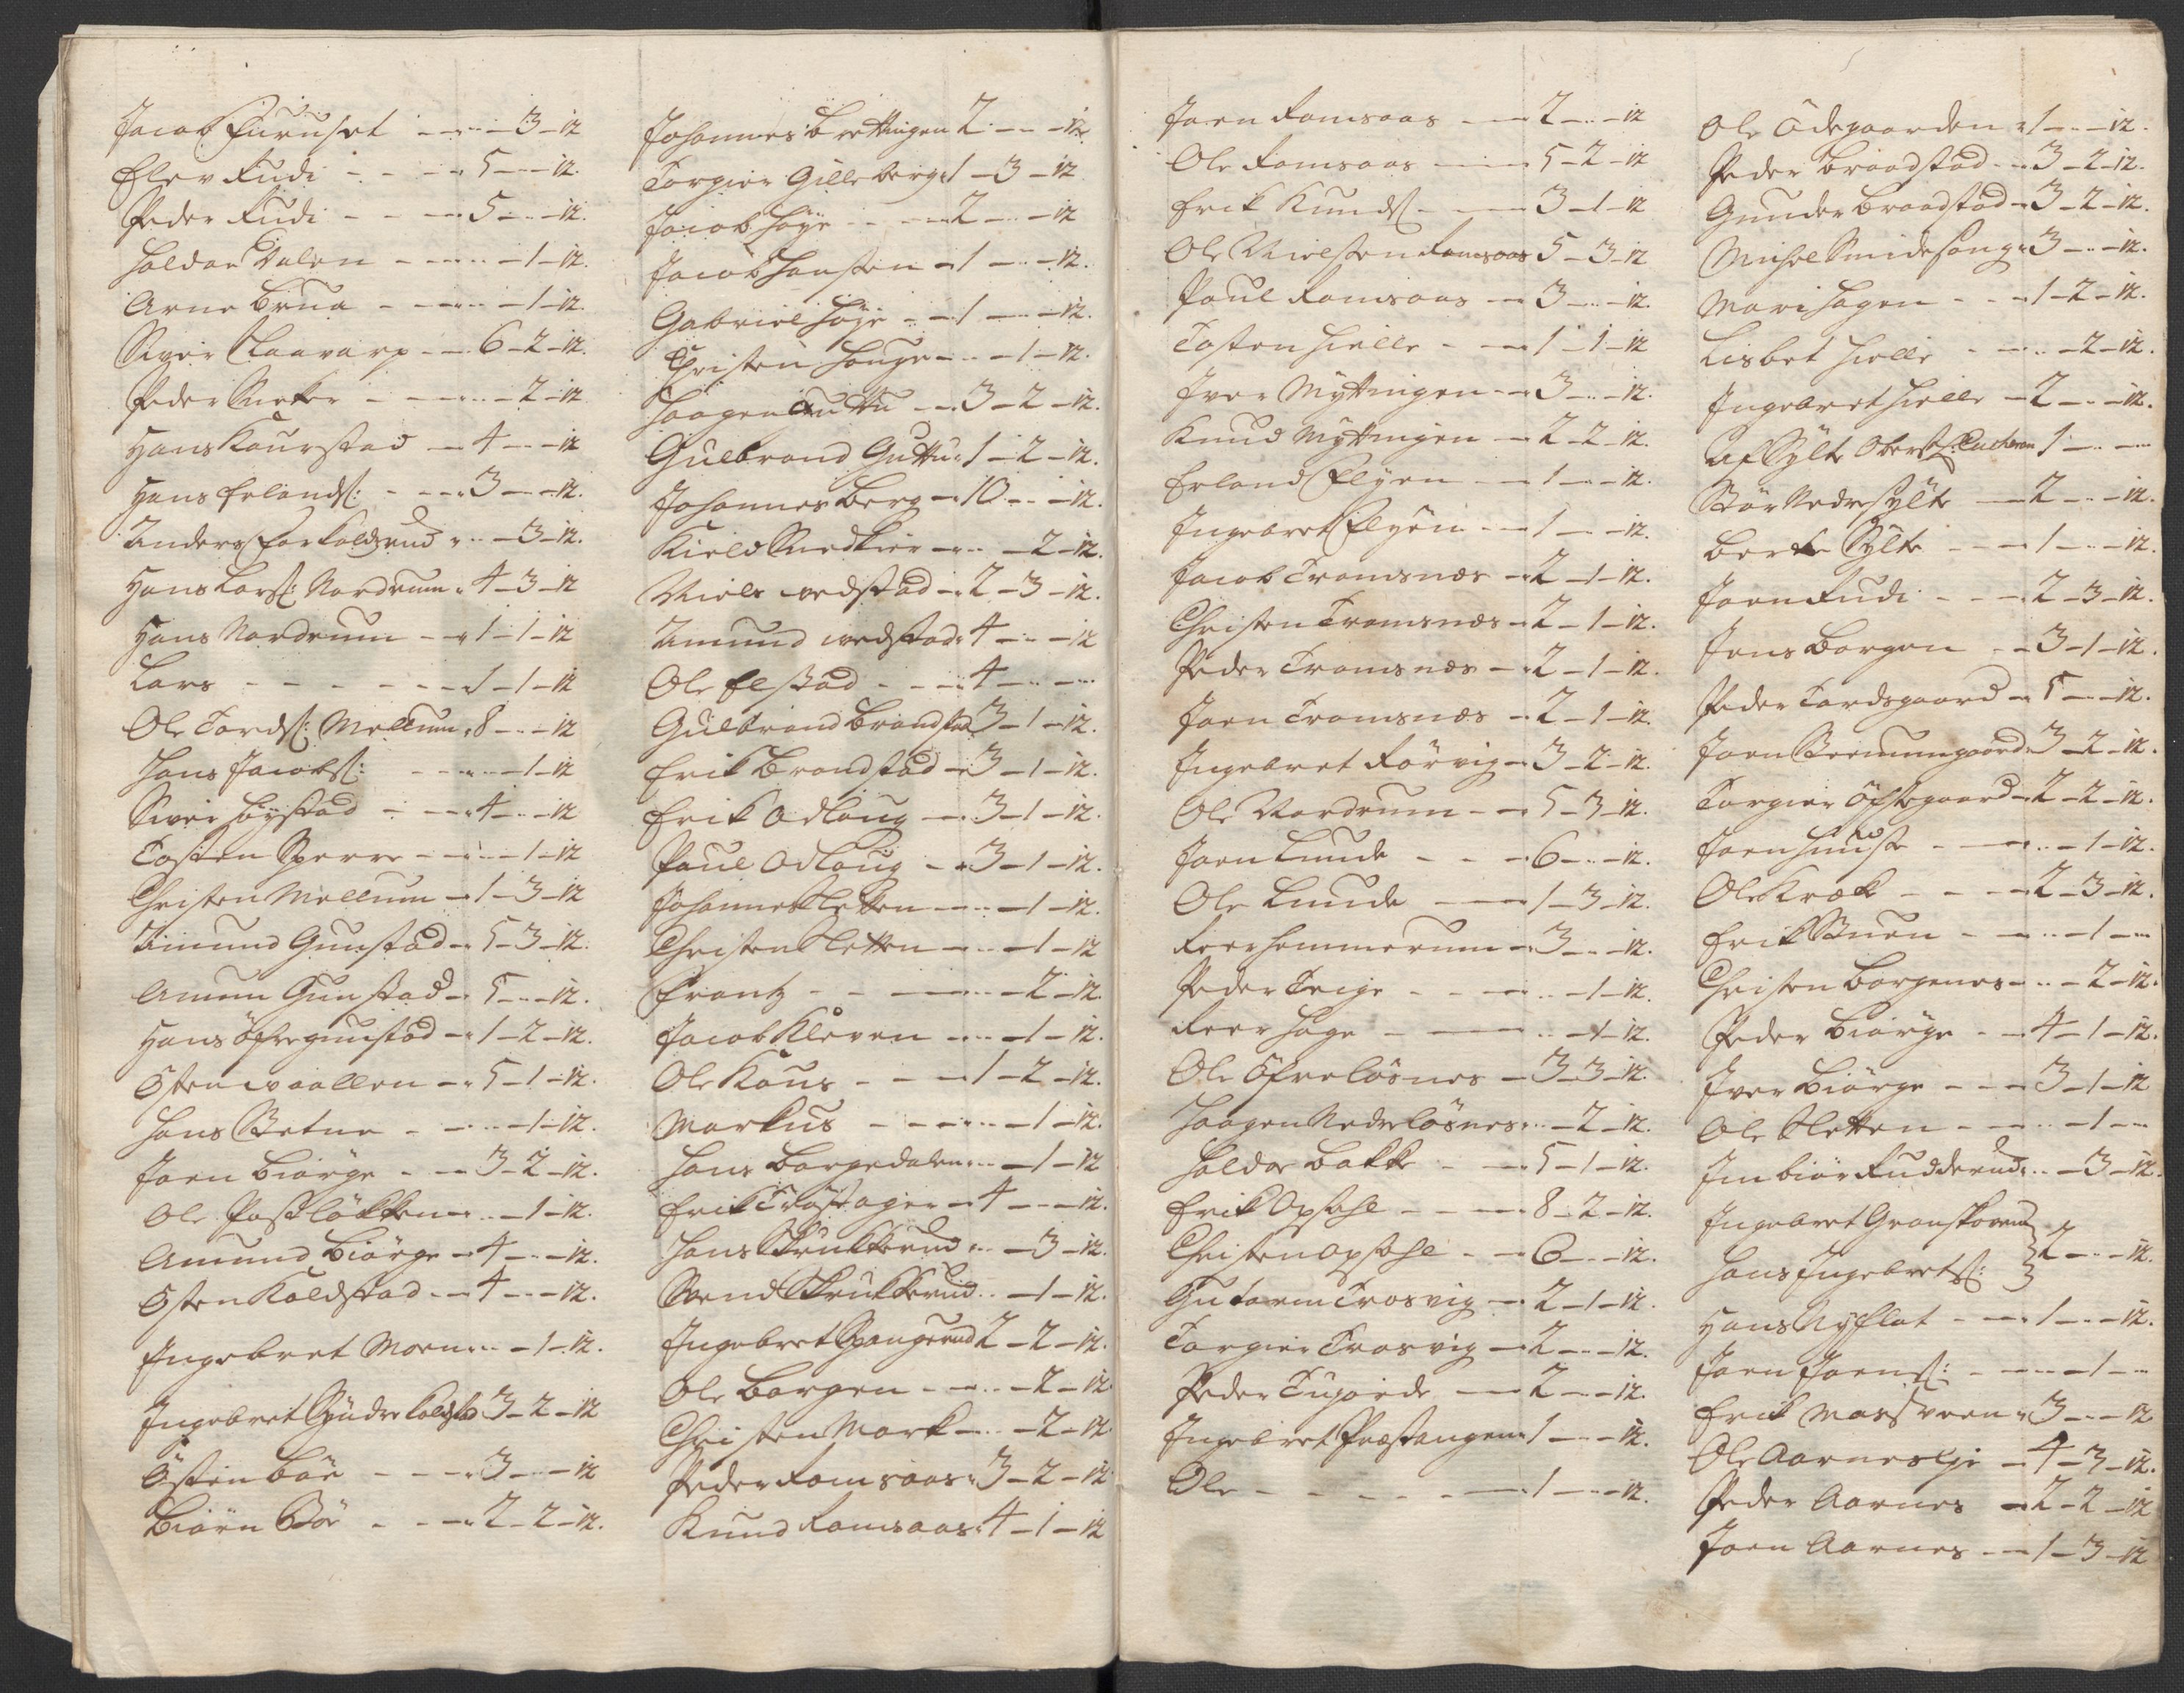 Jacob Furuset - - - 3 - 12
Elev Rudi - - - 5 - - 12.
Peder Rudi - - - 5 - - 12.
Haldor Dalen - - - 1 - 12.
Arne Brua - - - 1 - 12.
Siver Skaavarp - - 6 - 2 - 12.
Peder - - - 2 - 12
Hans Kaurstad - 4 - - 12
Hans Erlands: - - 3 - - 12.
Anders - - 3 - 12.
Hans Lars: Nordrum - 4 - 3 - 12
Hans Nordrum - - 1 - 1 - 12
Lars - - - - - 1 - 1 - 12
Ole Tords: Mellum - 8 - - 12
Hans Jacobs: - - - 1 - 12
Siver Høystad - - 4 - - 12
Tosten Sperre - - - 1 - 12
Christen Mellum - 1 - 3 - 12
Amund Gunstad - 5 - 3 - 12.
Amun Gunstad - 5 - - 12.
Hans Öfregunstad - 1 - 2 - 12.
Østen Waallen - 5 - 1 - 12.
Hans Betne - - - 1 - 12.
Joen Biørge - - 3 - 2 - 12.
Ole Postløkken - - 1 - 12.
Amund Biørge - 4 - - 12.
Østen Koldstad - 4 - - 12.
Ingebret Moen - - 1 - 12.
Ingebret Koldstad 3 - 2 - 12
Østen Bøe - - - 3 - - 12
Biørn Bøe - - - 2 - 2 - 12.
Johannes Brettingen 2 - - 12
Torgier Gilleberg 1 - 3 - 12
Jacob Høye - - 2 - - 12
Jacob Hansten - 1 - - 12.
Gabriel Høye - - 1 - - 12.
Christen Hauge - - - 1 - 12.
Haagen Guttu - - 3 - 2 - 12.
Gulbrand Guttu - 1 - 2 - 12.
Johannes Berg - 10 - - 12.
Kield - - - 2 - 12.
Niels Wedstad - 2 - 3 - 12.
Amund Wedstad - 4 - - 12
Ole Elstad - - - 4 - - -
Gulbrand Brandstad 3 - 1 - 12.
Erik Brandstad - 3 - 1 - 12.
Erik Odloug - 3 - 1 - 12.
Paul Odloug - - 3 - 1 - 12.
Johannes Sletten - - - 1 - 12.
Christen Sletten - - - 1 - 12
Frantz - - - - 2 - 12.
Jacob Kleven - - - 1 - 12.
Ole Kaus - - - 1 - 2 - 12.
Markus - - - - 1 - 12.
Hans Borgedalen - - 1 - 12
Erik Trøstager - 4 - - 12.
Hans Skrukkerud - - 3 - 12.
Svend Skrukkerud - - 1 - 12.
Ingebret Spangerud 2 - 2 - 12.
Ole Borgen - - - 2 - 12
Christen Mork - - - 2 - 12
Peder Romsaas - 3 - 2 - 12
Knud Romsaas - 4 - 1 - 12
Joen Romsaas - - 2 - - 12
Ole Romsaas - - 5 - 2 - 12
Erik Knuds: - - 3 - 1 - 12
Ole Nielsten Romsaas 5 - 3 - 12
Paul Romsaas - 3 - - 12.
Tosten Hielle - - 1 - 1 - 12
Iver Myttingen - 3 - - 12.
Knud Myttingen - 2 - 2 - 12.
Erland Flyen - - 1 - - 12.
Ingebret Flyen - - 1 - - 12.
Jacob Tromsnæs - 2 - 1 - 12.
Christen Tromsnæs - 2 - 1 - 12.
Peder Tromsnæs - 2 - 1 - 12.
Joen Tromsnæs - 2 - 1 - 12.
Ingebret Rørvig - 3 - 2 - 12.
Ole Nordrum - - 5 - 3 - 12.
Joen Lunde - - - 6 - - 12.
Ole Lunde - - 1 - 3 - 12.
Roer Hammerum - 3 - - 12.
Peder Teige - - - 1 - 12.
Roer Hage - - - 1 - 12.
Ole Øfreløsnes - 3 - 3 - 12.
Haagen Nedreløsnes - - 2 - 12.
Haldor Bakke - - 5 - 1 - 12.
Erik Opsahl - - - 8 - 2 - 12.
Christen Opsahl - - 6 - - 12.
Gutorm Trosvig - 2 - 1 - 12.
Torgier Trosvig - 2 - - 12.
Peder - 2 - - 12.
Ingebret Præstangen 1 - - 12.
Ole - - - - - 1 - - 12.
Ole Ödegaarden - 1 - - 12.
Peder Braadstad - 3 - 2 - 12.
Gunder Braadstad - 3 - 2 - 12.
Michel Smidesang - 3 - - 12.
Mari Hagen - - 1 - 2 - 12.
Lisbet Hielle - - - 2 - 12.
Ingebret Hielle - 2 - - 12.
Af Sylte Oberst: 1 - - -
Nedresylte - 2 - - 12.
Berte Sylte - - 1 - - 12.
Joen Rudi - - - 2 - 3 - 12.
Jens Borgen - - 3 - 1 - 12.
Peder Tordsgaard - 5 - - 12.
Joen - 3 - 2 - 12.
Torgier Öfstegaard - 2 - 2 - 12.
Joen - - - 1 - 12.
Ole Kræk - - - 2 - 3 - 12.
Erik Bruen - - - 1 - -
Christen Borgenes - - - 2 - 12.
Peder Biørge - - 4 - 1 - 12.
Iver Biørge - - - 3 - 1 - 12
Ole Sletten - - - 1 - -
Rudderud - - 3 - 12.
Ingebret Granskoven }
Hans Ingebrets: } 2 - - 12.
Hans Nyflat - - 1 - - 12.
Joen Joens: - - - 1 - -
Erik - 3 - - 12
Ole Aarneslye - 4 - 3 - 12.
Peder Aarnes - 2 - 2 - 12
Joen Aarnes - - 1 - 3 - 12